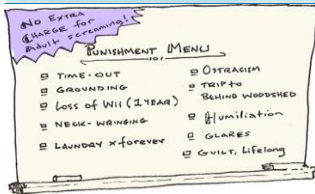 No Extra
Charge for
Adult screaming!
Punishment Menu
Time-out
Grounding
Loss of Wii (1 year)
Neck-wringing
Laundry x forever
Ostracism
Trip to
Behind Woodshed
Humiliation
Glares
Guilt, Lifelong